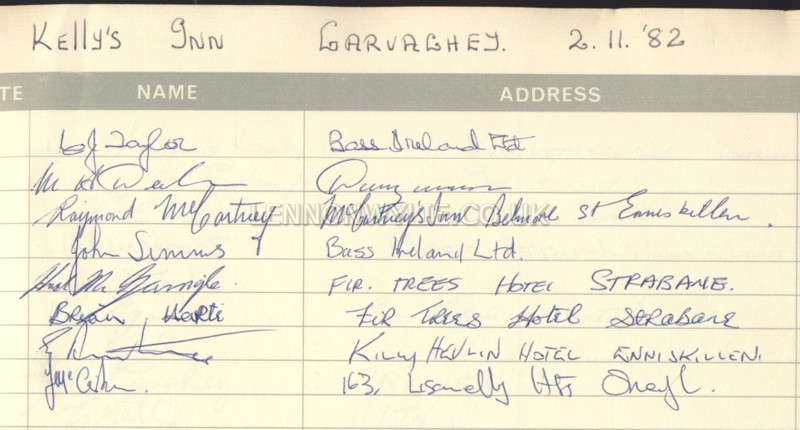 Kelly's Inn Garvaghey. 2.11.'82
TE NAME ADDRESS
Taylor Bass Ireland Ltd
Raymond McCartney McCartney's Inn Belmore St Enniskillen.
John Simms Bass Ireland Ltd.
Hugh Mc FIR. TREES HOTEL STRABANE.
Bryan Harte Fir Trees Hotel Strabane
Killy HEVLIN HOTEL ENNISKILLEN.
163, Lisanelly Hts Omagh.
LENNONWYLIE.CO.UK